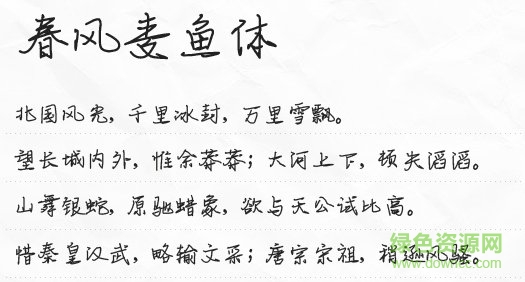 春风麦鱼体
北国风光，千里冰封，万里雪飘。
望长城内外，惟余莽莽；大河上下，顿失滔滔。
山舞银蛇，原驰蜡象，欲与天公试比高。
惜秦皇汉武，略输文采；唐宗宋祖，稍逊风骚。
绿色资源网
www.downcc.com